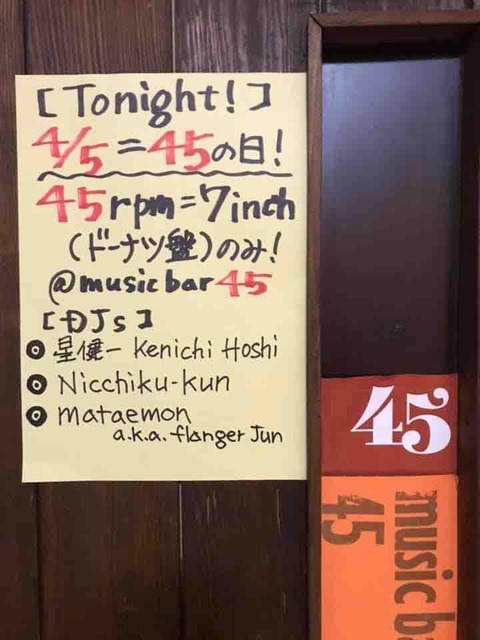 [Tonight!]
4/5=45の日!
45rpm=7inch
(ドーナツ盤)のみ!
@music bar 45
[DJs]
星健一 Kenichi Hoshi
Nicchiku-kun
mataemon
a.k.a. flanger Jun
45
music b
45